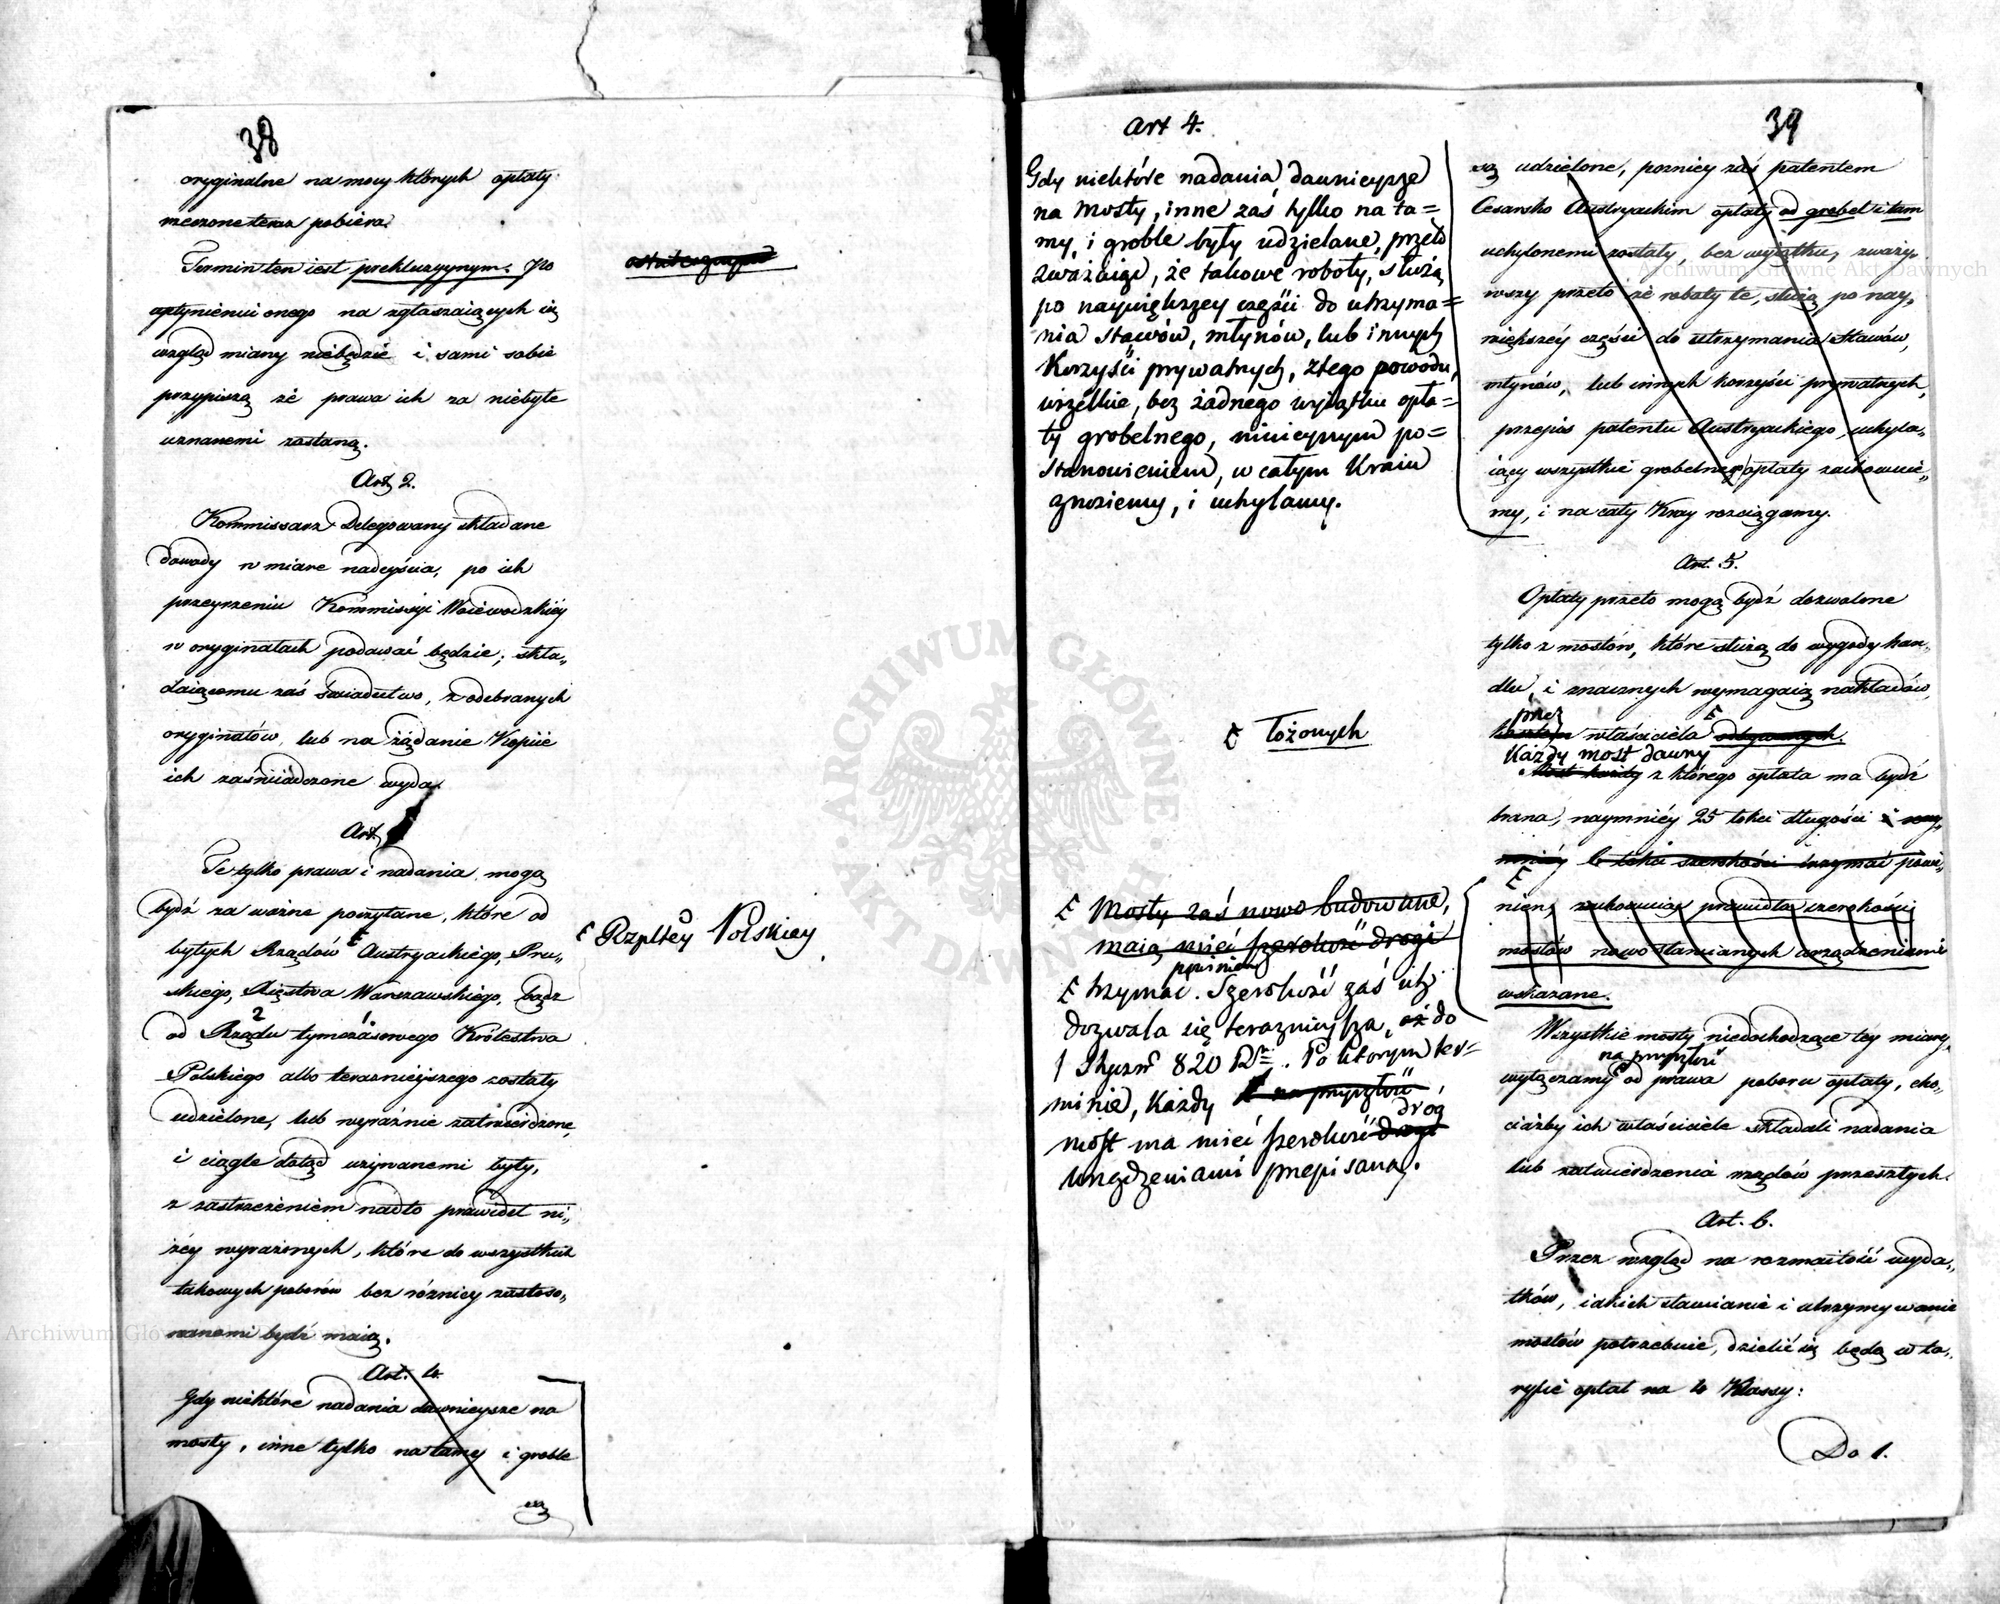 38
oryginalne na mocy których opłaty
rzeczone teraz pobiera.
Termin ten iest prekluzyynym. Po
upłynieniu onego na zgłaszaiących się
wzgląd miany niebędzie i sami sobie
przypiszą że prawa ich za niebyłe
uznanemi zostaną.
Art 2.
Kommissarz Delegowany składane
dowody w miarę nadeyścia, po ich
przeyrzeniu Kommissyi Woiewodzkiéy
w oryginałach podawać będzie; skła„
daiącemu zaś świadectwo, z odebranych
oryginałów, lub na żądanie Kopiie
ich zaświadczone wyda.
Art
Te tylko prawa i nadania mogą
bydź za ważne poczytane, które od
byłych Rządów Austryackiego, Pru„
skiego, Xięstwa Warszawskiego, bądź
od Rządu tymczasowego Królestwa
2 1
Polskiego albo teraznieyszego zostały
udzielone, lub wyraźnie zatwierdzone,
i ciągle dotąd używanemi były,
z zastrzeżeniem nadto prawideł ni„
żéy wyrażonych, które do wszystkich
takowych poborów bez różnicy zastoso„
wanemi bydź maią.
Art. 4.
Gdy niektóre nadania dawnieysze na
mosty, inne tylko na tamy i groble
są
Rzpltey Polskiey
Art 4.
Gdy niektóre nadania dawnieysze
na mosty, inne zaś tylko na ta=
my, i groble były udzielane, przeto
zważaiąc, że takowe roboty, służą
po naywiększey części do utrzyma=
nia Stawów, młynów, lub innych
Korzyści prywatnych, z tego powodu,
wszelkie, bez żadnego wyiątku opła=
ty grobelnego, ninieyszym po=
stanowieniem, w całym Kraiu
znosiemy, i uchylamy.
łożonych
Mosty zaś nowo budowane,
maią mieć szerokość drogi
powinien
trzymać. Szerokość zaś ich
dozwala się teraznieysza, aż do
1 Stycznia 820 R. Po którym ter=
minie, Każdy na przyszłość
dróg
most ma mieć szerokość drogi
urządzeniami przepisaną.
39
są udzielone, pozniey zaś patentem
Cesarsko Austryackim opłaty od grobel i tam
uchylonemi zostały, bez wyiątku, zważy„
wszy przeto że roboty te, służą po nay„
większéy części do utrzymania Stawów,
młynów, lub innych korzyści prywatnych,
przepis patentu Austryackiego, uchyla„
iący wszystkie grobelnego opłaty zachowuie„
my, i na cały Kray rozciągamy.
Art. 5.
Opłaty przeto mogą bydź dozwolone
tylko z mostów, które służą do wygody han„
dlu, i znacznych wymagaią nakładów,
przez
właściciela
Każdy most dawny
Most każdy z którego opłata ma bydź
brana, naymniéy 25 łokci długości i nay„
mniéy 6 łokci szerokości trzymać powi„
nien, zachowuiąc prawidła szerokości
mostów nowo stawianych urządzeniami
wskazane.
Wszystkie mosty niedochodzące tey miary,
na przyszłość
wyłączamy od prawa poboru opłaty, cho„
ciażby ich właściciele składali nadania
lub zatwierdzenia rządów przeszłych.
Art. 6.
Przez wzgląd na rozmaitość wyda„
tków, iakich stawianie i utrzymywanie
mostów potrzebuie, dzielić się będą w ta„
ryfie opłat na 4 Klassy:
Do 1.
Archiwum Główne Akt Dawnych
ARCHIWUM GŁÓWNE AKT DAWNYCH